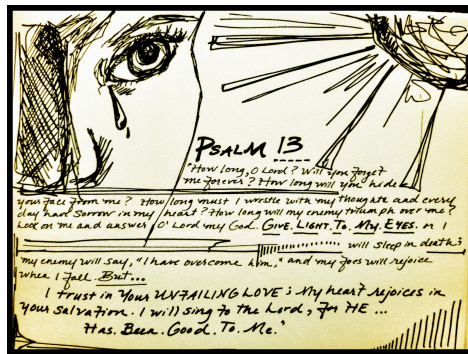 PSALM 13
"How long, O Lord? Will you forget
me forever? How long will you hide
your face from me? How long must I wrestle with my thoughts and every
day have sorrow in my heart? How long will my enemy triumph over me?
Look on me and answer, O' Lord my God. GIVE. LIGHT. TO. MY. EYES. or I
will sleep in death;
my enemy will say, "I have overcome him," and my foes will rejoice
when I fall. But...
I trust in Your UNFAILING LOVE; My heart rejoices in
your salvation. I will sing to the Lord, for HE ...
Has. Been. Good. To. Me."